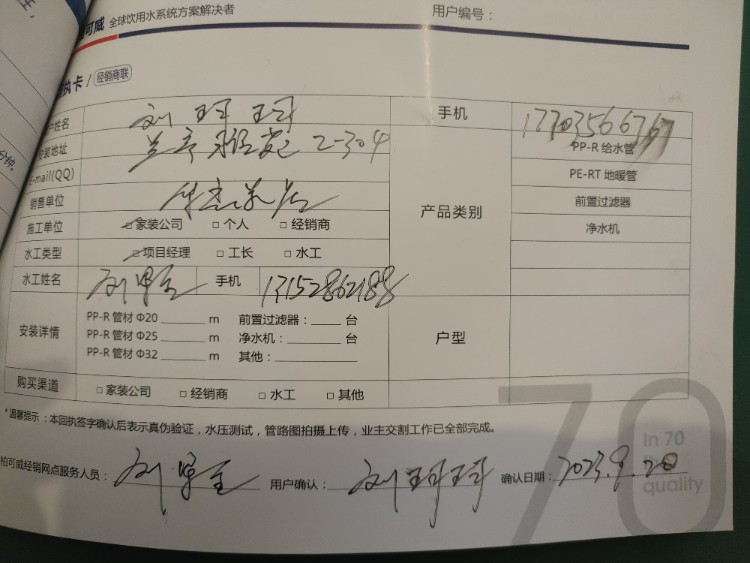 可威 全球饮用水系统方案解决者 用户编号：
执卡 / 经销商联
户姓名 刘珂珂 手机
安装地址 2-304 PP-R 给水管
E-mail(QQ) PE-RT 地暖管
销售单位 产品类别 前置过滤器
施工单位 家装公司 □ 个人 □ 经销商 净水机
水工类型 项目经理 □ 工长 □ 水工
水工姓名 刘 手机 13152862188
安装详情 PP-R 管材 Φ20 m 前置过滤器： 台 户型
PP-R 管材 Φ25 m 净水机： 台
PP-R 管材 Φ32 m 其他：
购买渠道 □ 家装公司 □ 经销商 □ 水工 □ 其他
*温馨提示：本回执签字确认后表示真伪验证，水压测试，管路图拍摄上传，业主交割工作已全部完成。
70
In 70
quality
柏可威经销网点服务人员： 刘 用户确认： 刘珂珂 确认日期： 2023.9.20